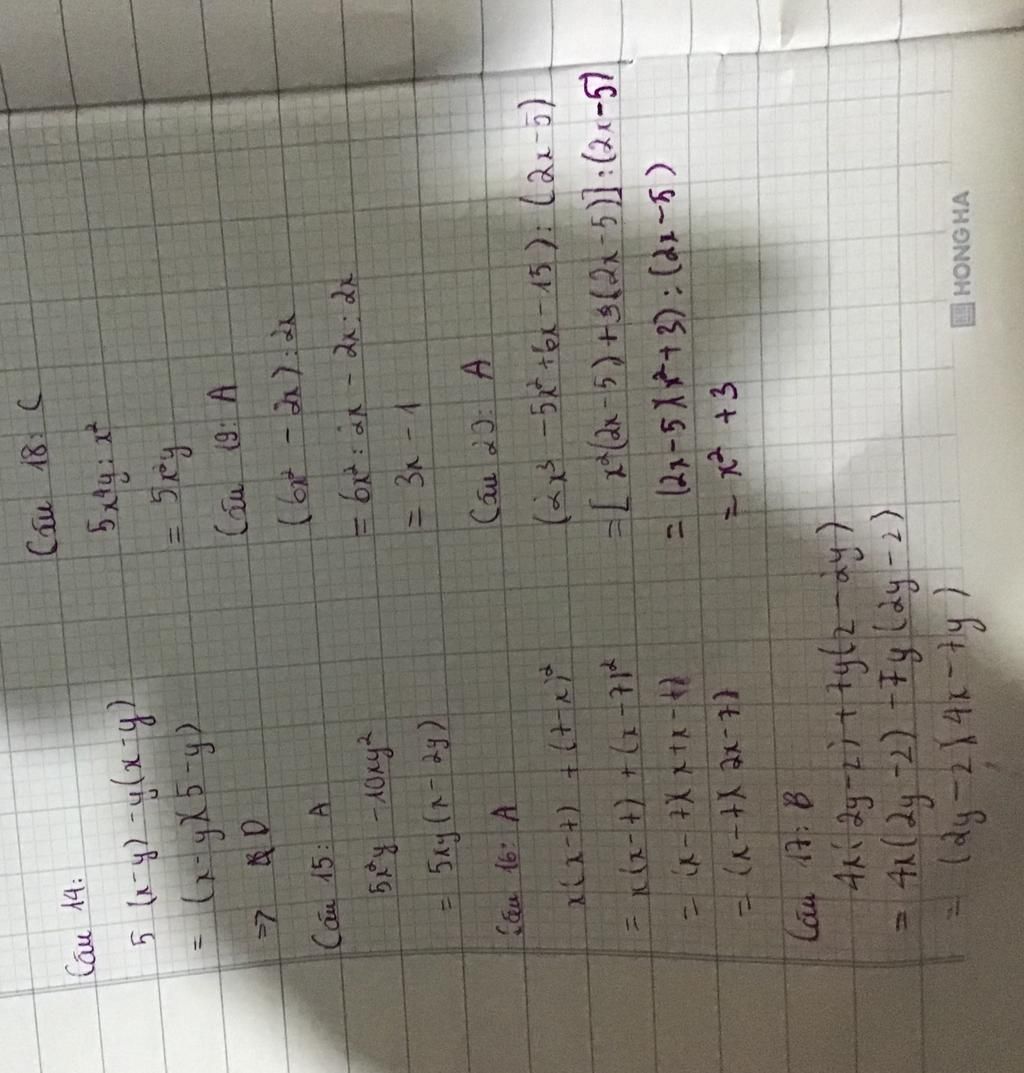 Câu 14:
5 (x-y) - y(x-y)
= (x-y)(5-y)
=> D
Câu 15: A
5x²y - 10xy²
= 5xy(x-2y)
Câu 16: A
x(x-7) + (7-x)²
= x(x-7) + (x-7)²
= (x-7)(x+x-7)
= (x-7)(2x-7)
Câu 17: B
4x(2y-2) + 7y(2-2y)
= 4x(2y-2) -7y(2y-2)
= (2y-2)(4x-7y)
Câu 18: C
5x⁴y : x²
= 5x²y
Câu 19: A
(6x² - 2x) : 2x
= 6x² : 2x - 2x : 2x
= 3x - 1
Câu 20: A
(2x³ - 5x² + 6x - 15) : (2x-5)
= [x²(2x-5) + 3(2x-5)] : (2x-5)
= (2x-5)(x²+3) : (2x-5)
= x² + 3
HONG HA